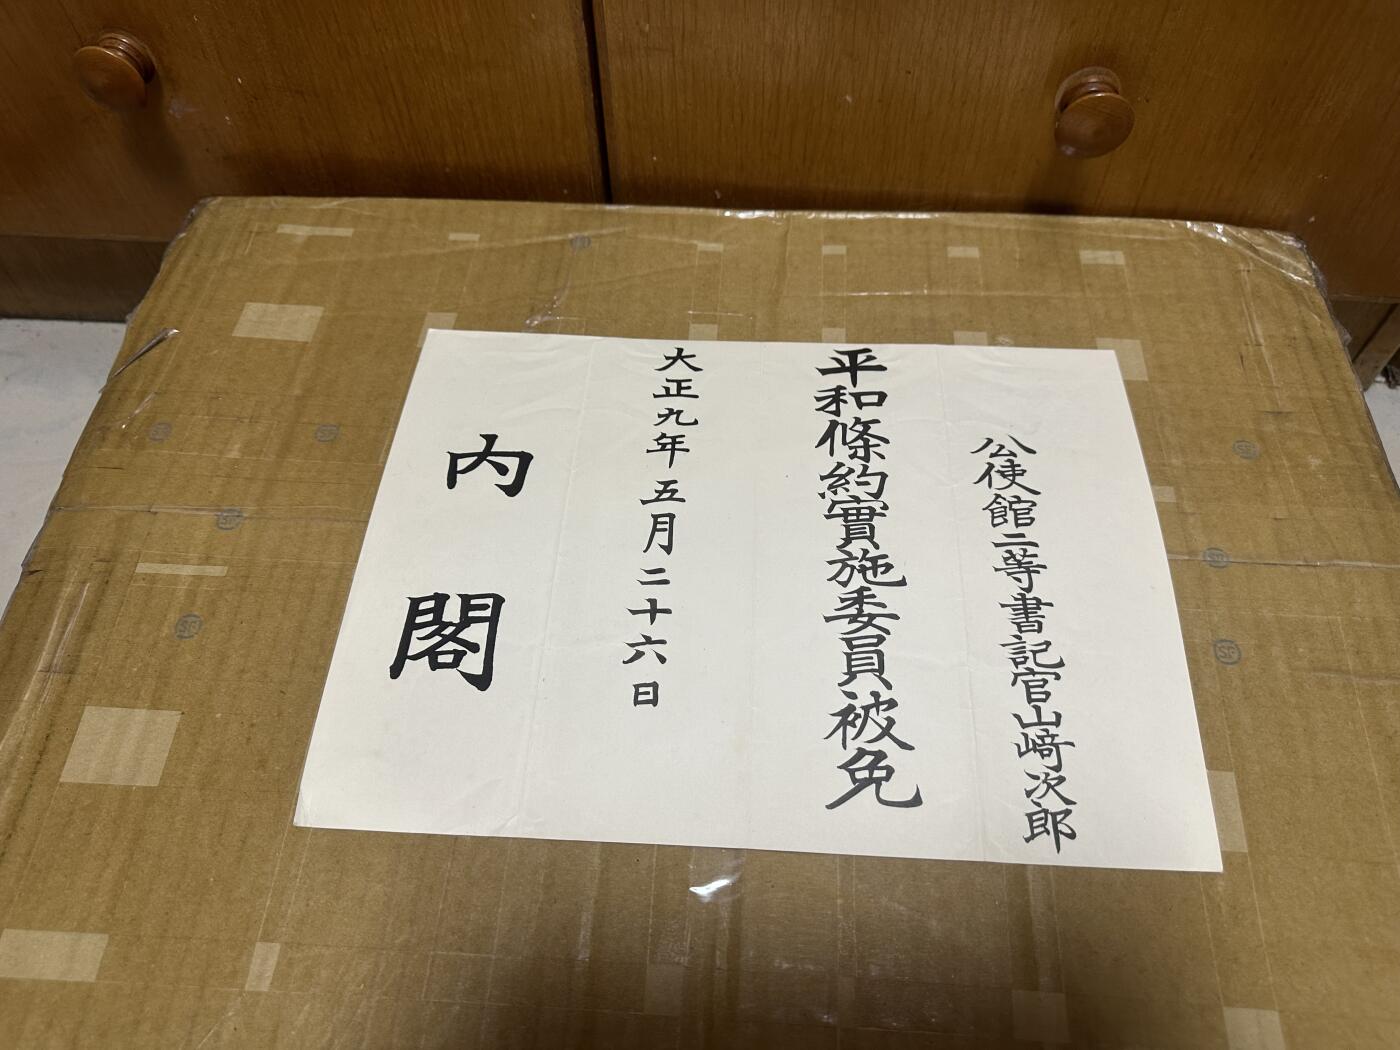 公使館二等書記官山﨑次郎
平和條約實施委員被免
大正九年五月二十六日
内閣